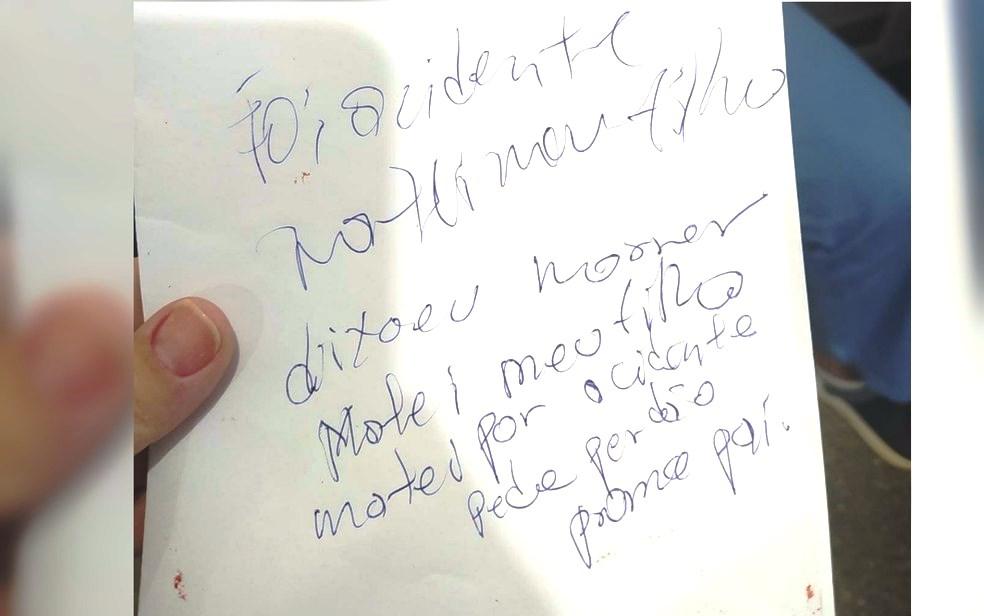 Foi, acidente
matei meu filho
dixoeu morrer
Matei meu filho
matei por acidante
pede perdão
prome pai.